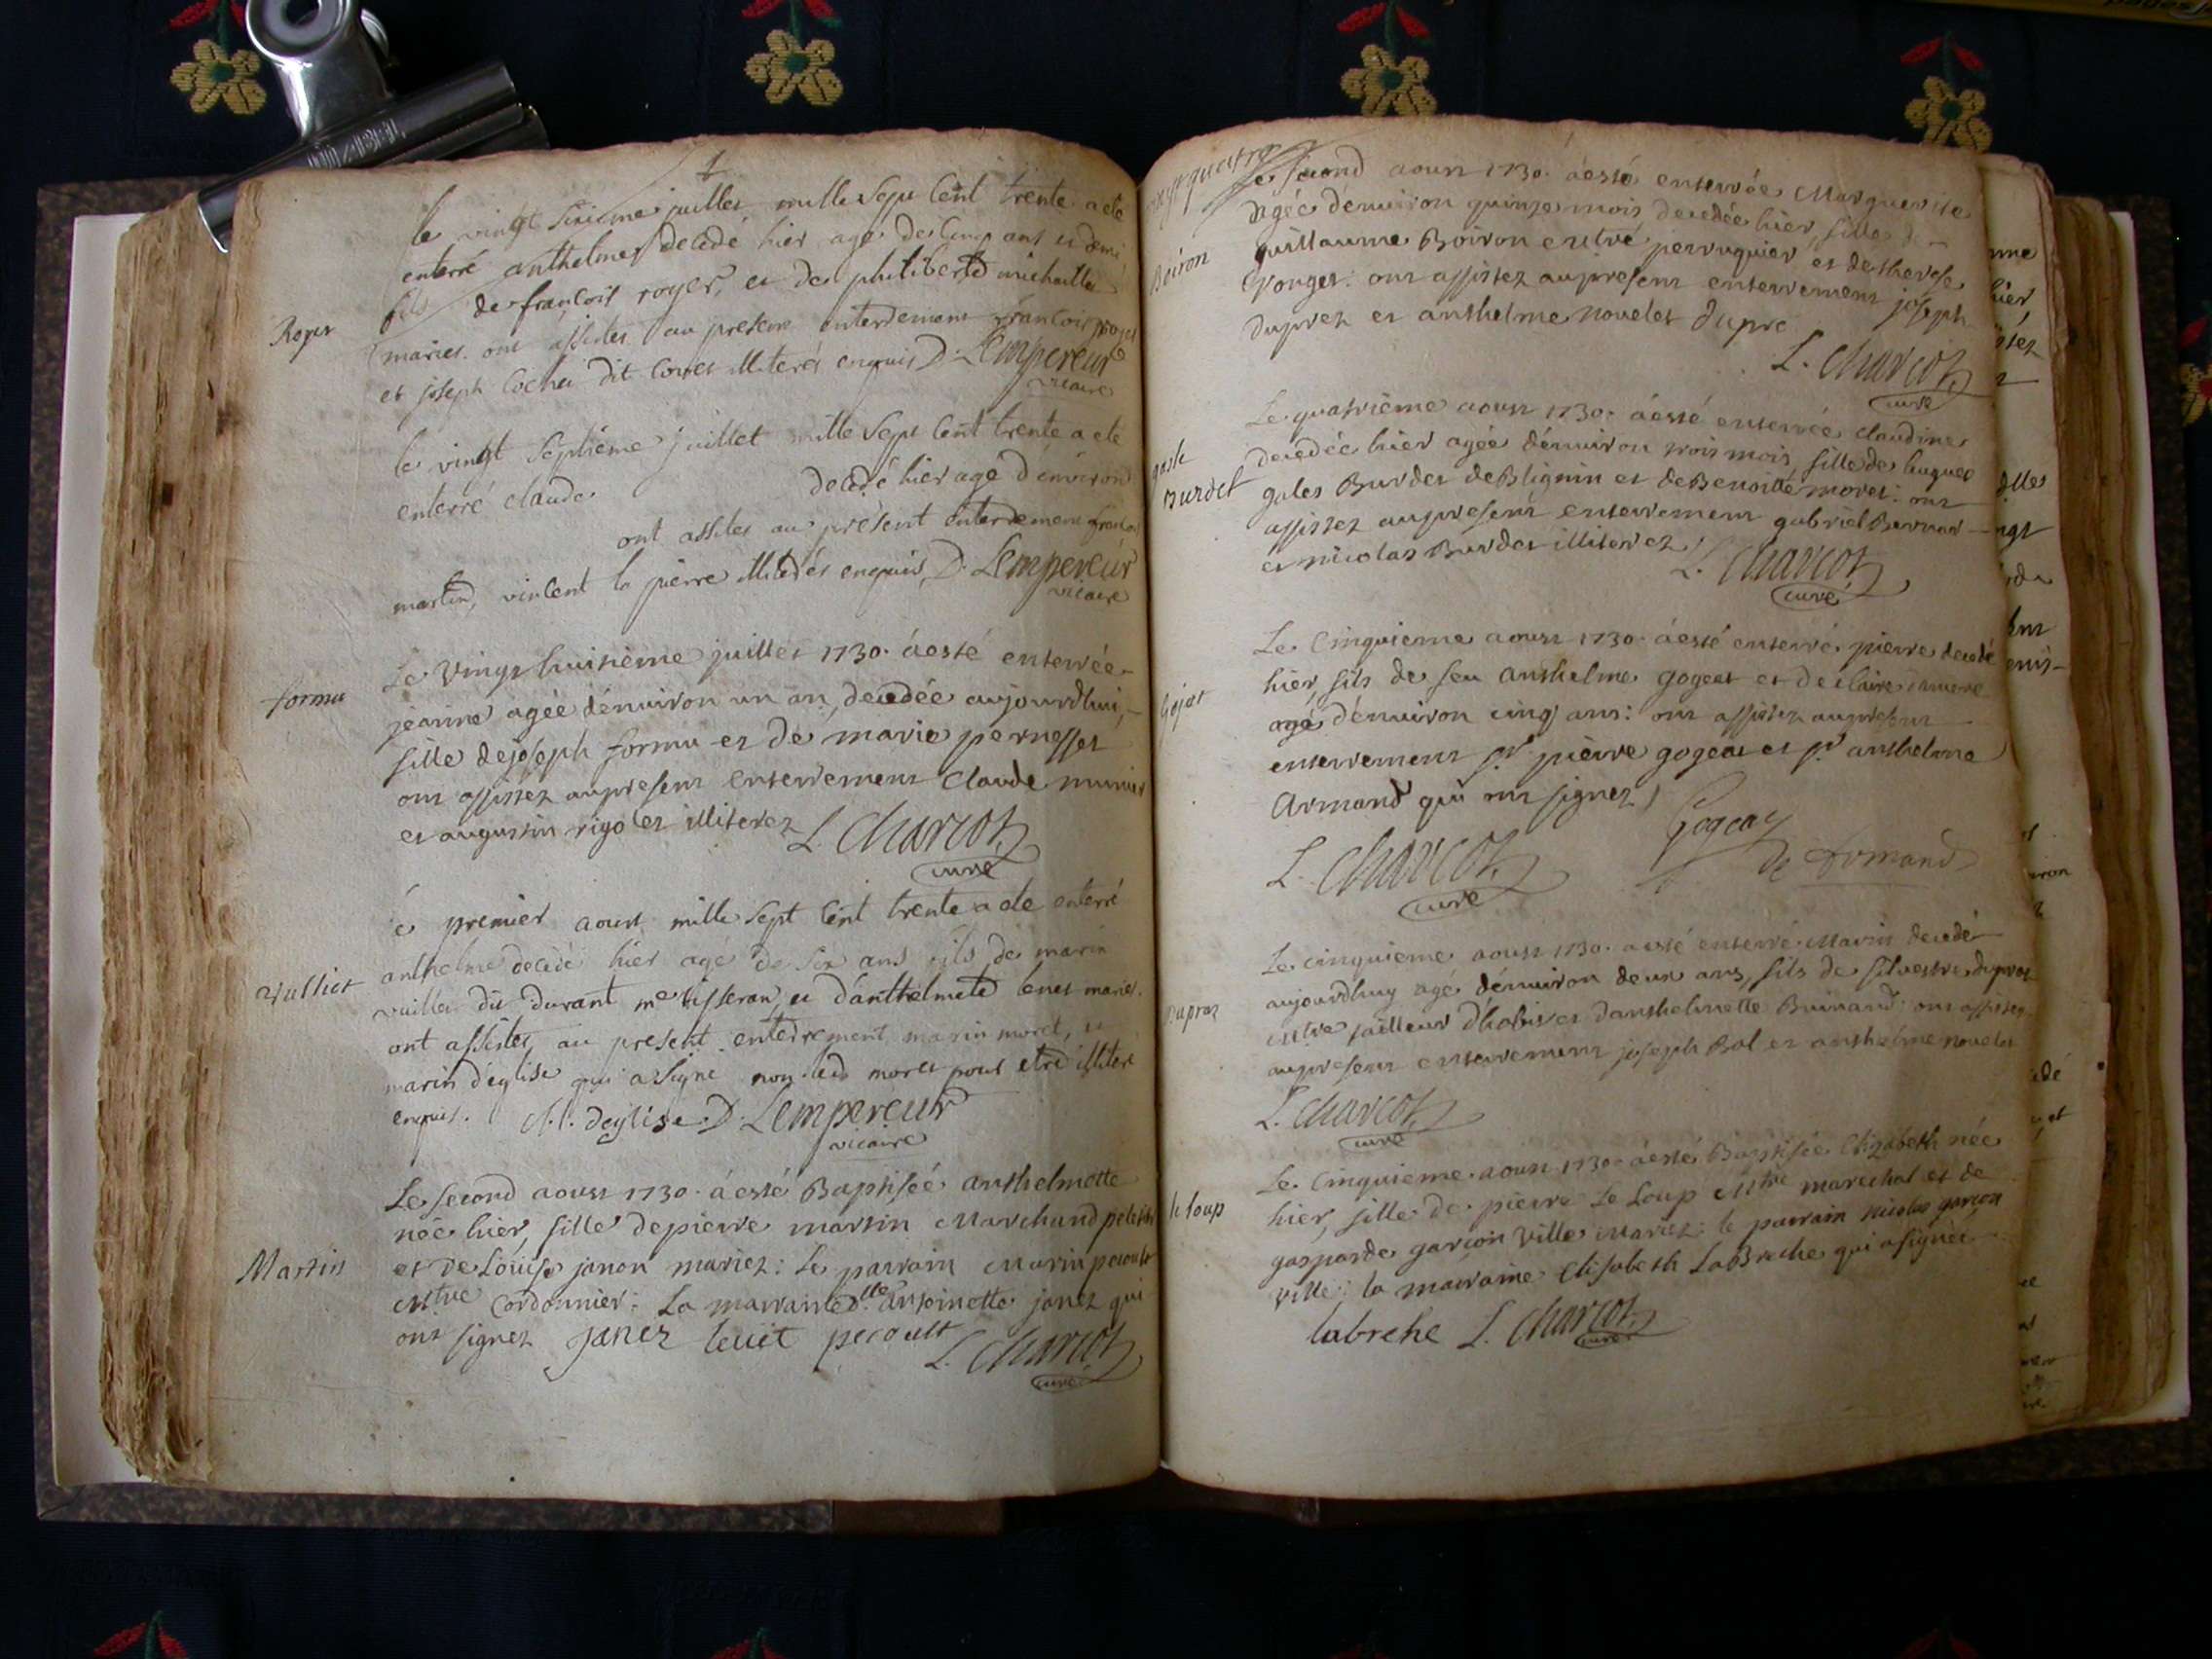 le vingt sixieme juillet mille sept cent trente a ete
enterré anthelme decedé hier agé de cinq ans et demi
fils de françois royer, et de philiberte michaille
Royer
mariés. ont assistes au present enterrement françois
et joseph cochet dit illiterés enquis D. Lempereur
vicaire
le vingt septieme juillet mille sept cent trente a ete
enterré claude decedé hier agé d'environ
ont assistes au présent enterrement françois
martin, vincent la pierre illiterés enquis, D. Lempereur
vicaire
Le Vingt huitième juillet 1730. a esté enterrée
formu
jeanne agée d'environ un an, decedée aujourdhui,
fille de joseph formu et de marie pernesset
ont assistez au present enterrement Claude munier
et augustin rigolet illiterez L. Charcot
curé
premier aoust mille sept cent trente a ete enterré
anthelme decedé hier agé de six ans fils de marin
vulliet
vuillet dit durant me tisseran, et d'anthelmete benet mariés.
ont assistes, au present enterrement marin moret, et
marin d'eglise qui a signé non led moret pour etre illiteré
enquis. M. deglise. D. Lempereur
vicaire
Le Second aoust 1730. a esté Baptisée anthelmette
née hier, fille de pierre martin Marchand
Martin
et de Louise janon mariez: Le parrain Marin peroult
Mtre Cordonnier: La marraine dlle antoinette janez qui
ont signez janez peroult L. Charcot
curé
vingt quatre
Le second aoust 1730. a esté enterrée Marguerite
agée d'environ quinze mois decedée hier, fille de
Boiron
guillaume Boiron Mtre perruquier et de therese
ronget: ont assistez au present enterrement joseph
duprez et anthelme novelet dupré
L. Charcot
curé
Le quatrième aoust 1730. a esté enterrée claudine
decedée hier agée d'environ trois mois, fille de hugues
Burdet
galet Burdet de Blignin et de Benoitte moret: ont
assistez au present enterrement gabriel Bernar
et nicolas Burdet illiterez L. Charcot
curé
Le Cinquieme aoust 1730. a esté enterré pierre decedé
hier, fils de feu anthelme gogeat et de claire
agé d'environ cinq ans: ont assistez au present
enterrement sr pierre gogeat et sr anthelme
Armand qui ont signez
Gogeat
L. Charcot de Armand
curé
Le cinquieme aoust 1730. a esté enterré Marin decedé
aujourdhuy agé d'environ deux ans, fils de silvestre dupraz
dupraz
Mtre tailleur d'habis et d'anthelmette Buinand: ont assistez
au present enterrement joseph Bal et anthelme novelet
L. Charcot
curé
Le Cinquieme aoust 1730. a esté Baptisée Elizabeth née
le loup
hier, fille de pierre Le Loup Mtre marechal et de
gasparde garçon ville mariez: le parrain nicolas garçon
ville: la marraine Elisabeth LaBreche qui a signéz
labrehe L. Charcot
curé